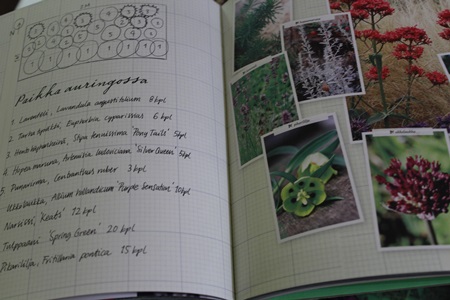 Paikka auringossa
1. Laventeli, Lavandula angustifolium 8 kpl
2. Tarha tyräkki, Euphorbia cyparissias 6 kpl
3. Stipa tenuissima 'Pony Tails' 5kpl
4. Hopea maruna, Artemisia 'Silver Queen' 5kpl
5. Punasima, Centhranthus ruber 3 kpl
Ukkolaukka, Allium hollandicum "Purple Sensation" 10kpl
Narsissi, 'Keats' 12 kpl
Tulppaani 'Spring Green' 20 kpl
Pikarililja, Fritillaria pontica 15 kpl